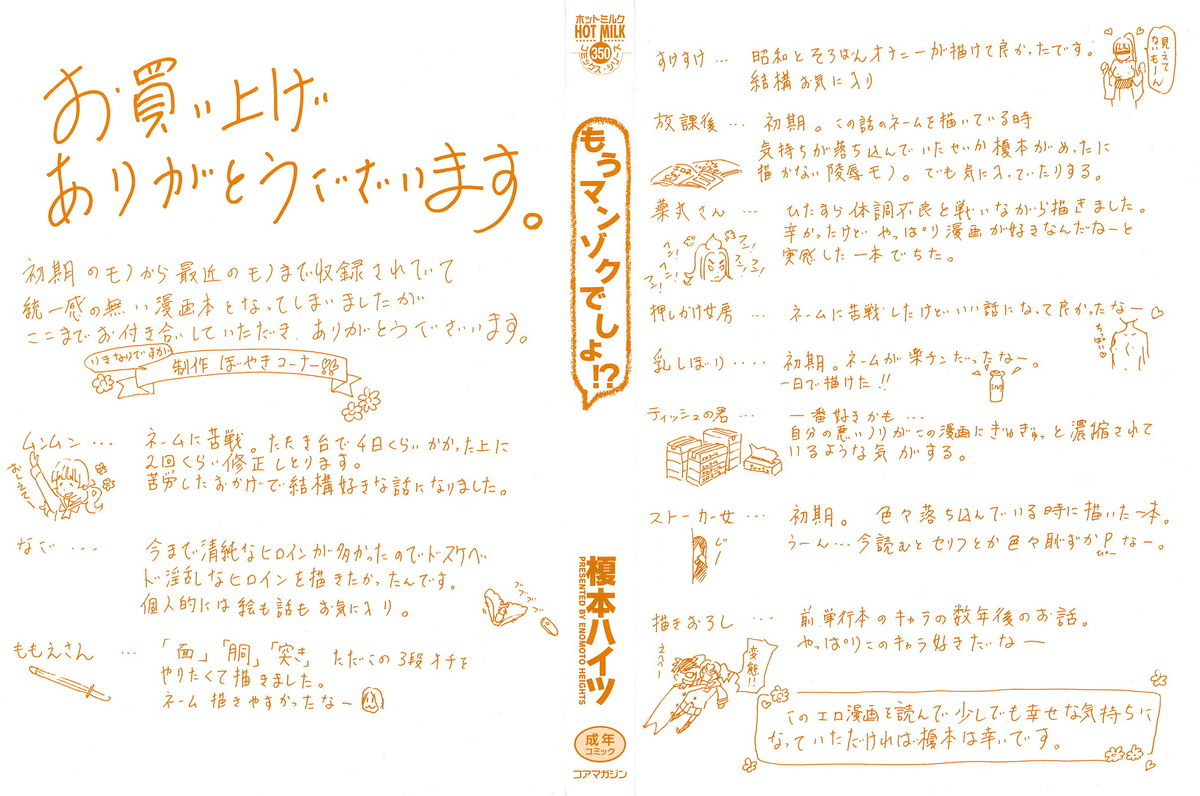 お買い上げ
ありがとうございます。
初期のモノから最近のモノまで収録されていて
統一感の無い漫画本となってしまいましたが
ここまでお付き合いしていただき、ありがとうございます。
いきなりですが
制作 ぼやきコーナー
ムンムン…
ネームに苦戦。たたき台で4日くらいかかった上に
2回くらい修正しとります。
苦労したおかげで結構好きな話になりました。
なぐ…
今まで清純なヒロインが多かったのでドスケベ
ド淫乱なヒロインを描きたかったんです。
個人的には絵も話もお気に入り。
ブブブブ
ももえさん …
「面」「胴」「突き」ただこの3段オチを
やりたくて描きました。
ネーム描きやすかったなー
ホットミルク
HOT MILK
350
コミックス・シリーズ
もうマンゾクでしょ!?
榎本ハイツ
PRESENTED BY ENOMOTO HEIGHTS
成年
コミック
コアマガジン
すけすけ…
昭和とそろばんオナニーが描けて良かったです。
結構お気に入り
見えてないもーん
放課後 …
初期。この話のネームを描いている時
気持ちが落ち込んでいたせいか榎本がめったに
描かない陵辱モノ。でも気に入っていたりする。
薬丸さん …
ひたすら体調不良と戦いながら描きました。
辛かったけど やっぱり漫画が好きなんだなーと
実感した一本でした。
押しかけ女房 …
ネームに苦戦したけどいい話になって良かったなー
ちっぱい
乳しぼり….
初期。ネームが楽チンだったなー。
一日で描けた!!
ティッシュの君 …
一番好きかも…
自分の悪いノリがこの漫画にぎゅぎゅっと濃縮されて
いるような気がする。
ストーカー女 …
初期。 色々落ち込んでいる時に描いた一本。
うーん…今読むとセリフとか色々恥ずかPなーっ。
じー
描きおろし …
前単行本のキャラの数年後のお話。
やっぱりこのキャラ好きだなー
えへへー
変態!!
このエロ漫画を読んで少しでも幸せな気持ちに
なっていただければ榎本は幸いです。